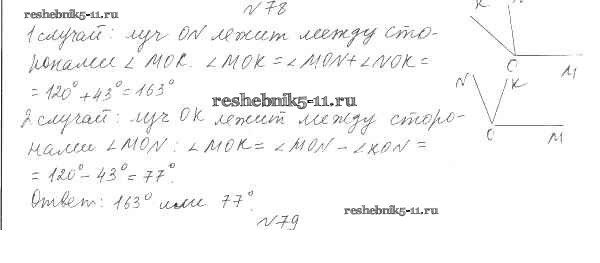 N78
reshebnik5-11.ru
1 случай: луч ON лежит между сто-
ронами ∠MOK. ∠MOK = ∠MON + ∠NOK =
= 120° + 43° = 163°
reshebnik5-11.ru
2 случай: луч OK лежит между сторо-
нами ∠MON: ∠MOK = ∠MON - ∠KON =
= 120° - 43° = 77°.
Ответ: 163° или 77°.
reshebnik5-11.ru
N79
O M
N K
O M